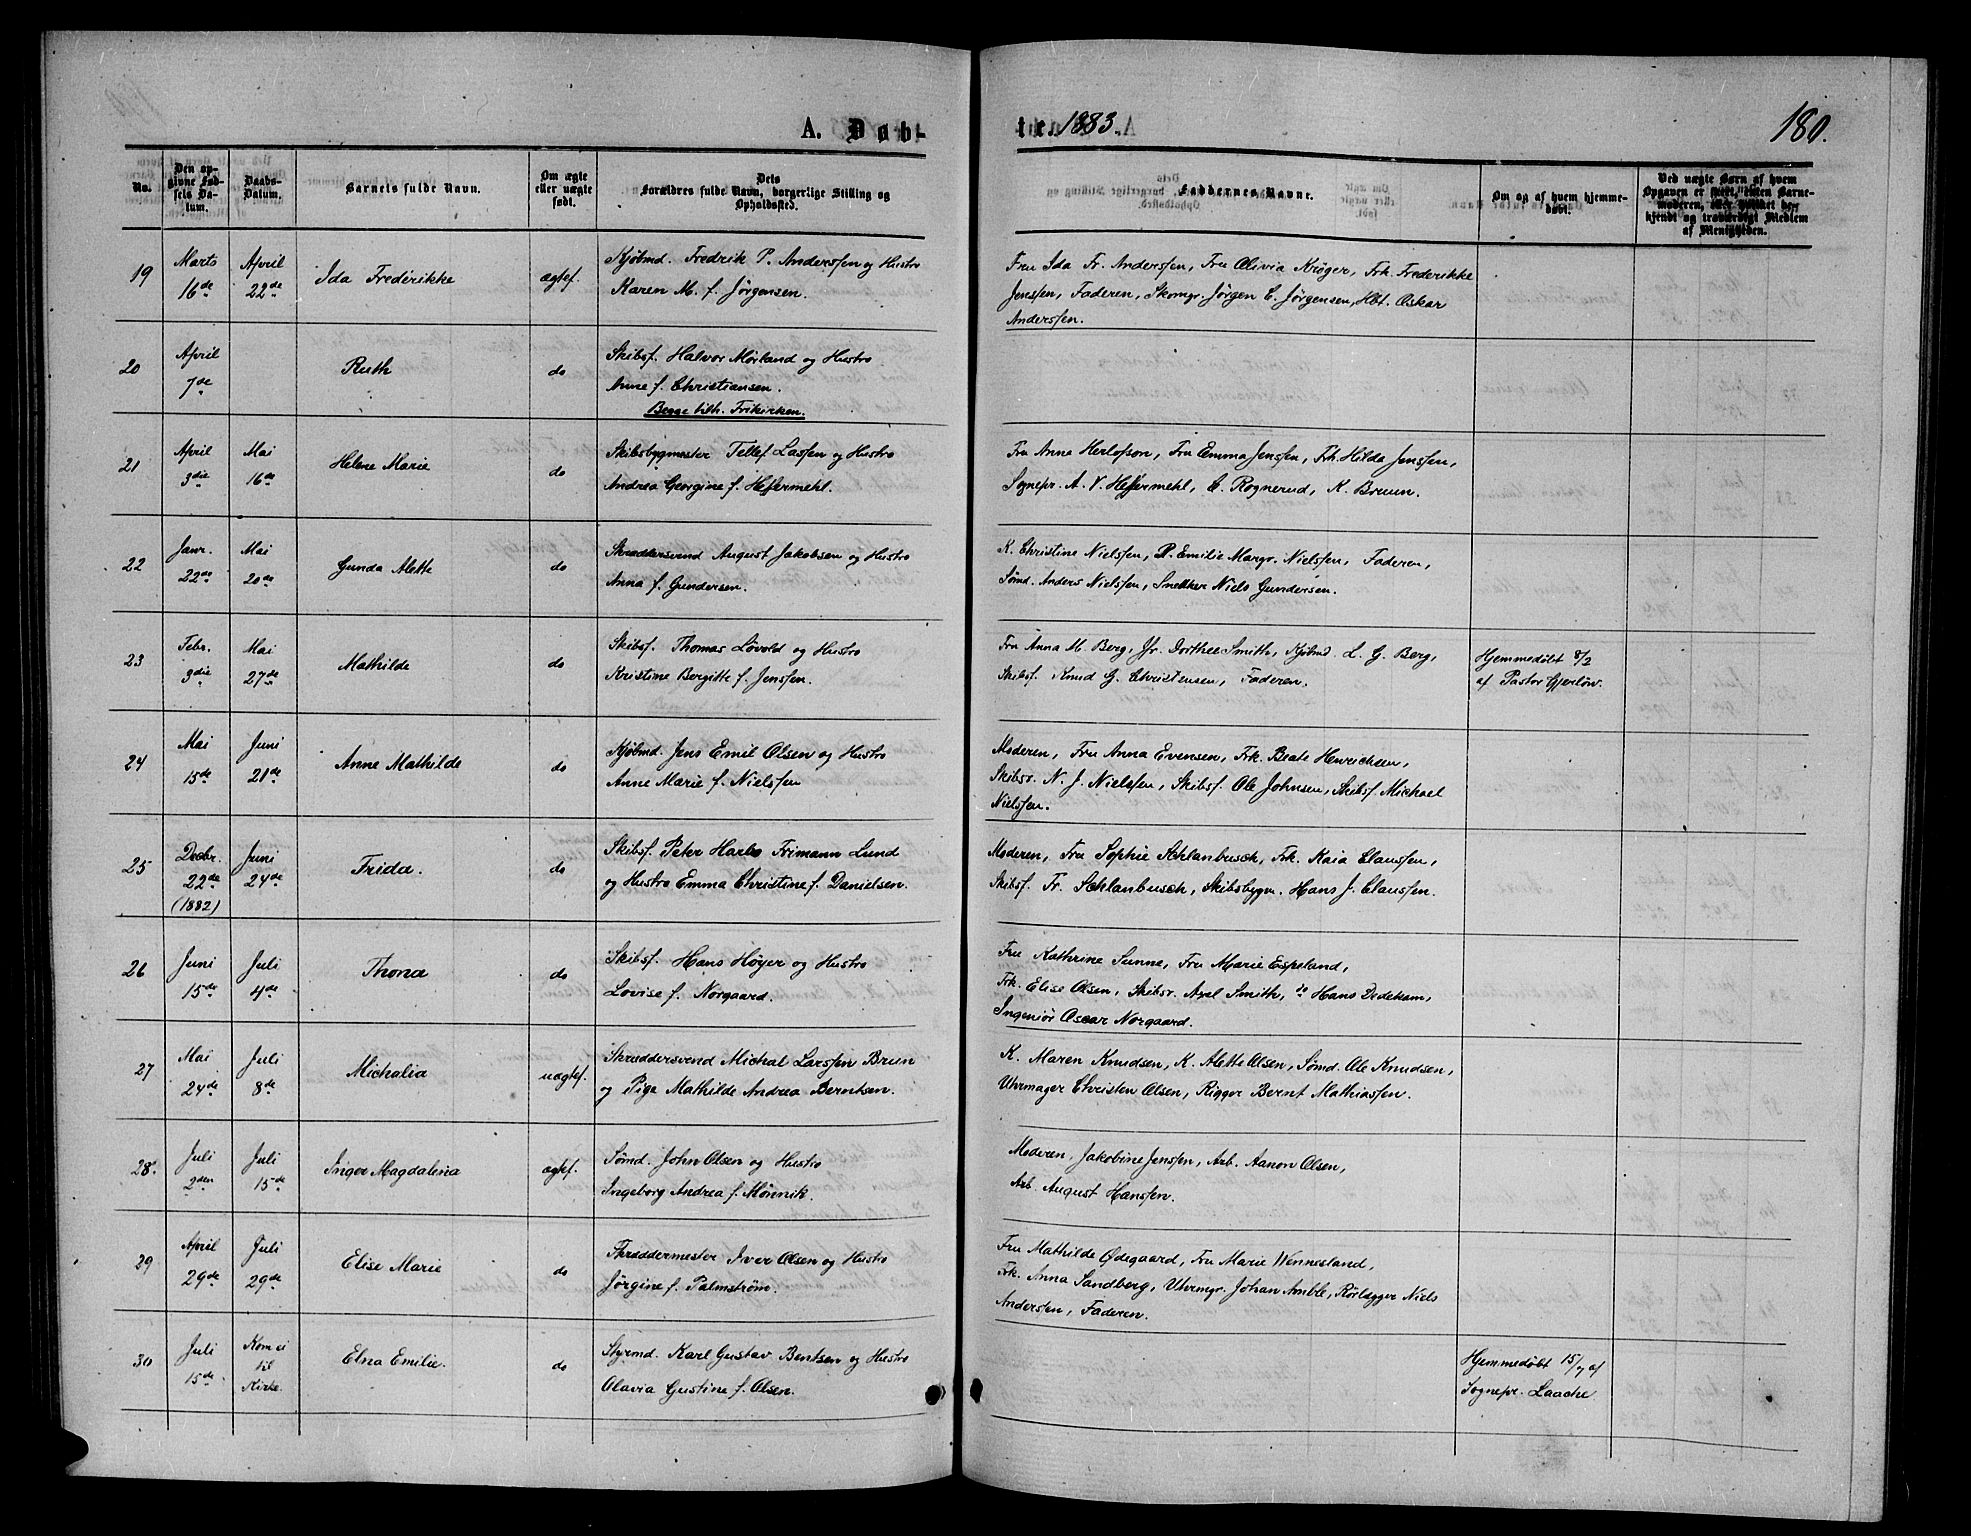 A. Døb-
te. 1883.
180.
No.
Den op-
givne Fød-
sels Da-
tum.
Daabs-
Datum.
Barnets fulde Navn.
Om ægte
eller uægte
født.
Dets
Forældres fulde Navn, borgerlige Stilling og
Opholdssted.
Faddernes Navne.
Om og af hvem hjemme-
døbt.
Ved uægte Børn af hvem
Opgaven er skeet, enten Barne-
moderen, eller hvilket be-
kjendt og troværdigt Medlem
af Menigheden.
19
Marts
16de
April
22de
Ida Frederikke
ægtef.
Kjøbmd. Fredrik P. Anderssen og Hustro
Karen M. f. Jørgensen.
Fru Ida Fr. Anderssen, Fru Olivia Krøger, Frk. Frederikke
Jenssen, Faderen, Skomgr. Jørgen C. Jørgensen, Hbt. Oskar
Anderssen.
20
April
7de
Ruth
do
Skibsf. Halvor Mørland og Hustro
Anne f. Christiansen.
Begge tilh. Frikirken.
21
April
3die
Mai
16de
Helene Marie
do
Skibsbygmester Tellef Lassen og Hustro
Andrea Georgine f. Heffermehl.
Fru Anna Herlofson, Fru Emma Jenssen, Frk. Hilda Jenssen,
Sognepr. A. V. Heffermehl, C. Rognerud, K. Bruun.
22
Janr.
22de
Mai
20de
Gunda Alette
do
Skræddersvend August Jakobsen og Hustro
Anna f. Gundersen.
K. Christine Nielssen, P. Emilie Margr. Nielssen, Faderen,
Sømd. Anders Nielssen, Snekker Niels Gundersen.
23
Febr.
3die
Mai
27de
Mathilde
do
Skibsf. Thomas Løvold og Hustro
Kristine Bergitte f. Jenssen.
Fru Anna M. Berg, Jfr. Dorthee Smith, Kjøbmd. L. G. Berg,
Skibsf. Knud G. Christensen, Faderen.
Hjemmedøbt 8/2
af Pastor Gjerløw.
24
Mai
15de
Juni
21de
Anne Mathilde
do
Kjøbmd. Jens Emil Olsen og Hustro
Anne Marie f. Nielssen
Moderen, Fru Anna Evensen, Frk. Beate Henrichsen,
Skibsr. N. J. Nielssen, Skibsf. Ole Johnsen, Skibsf. Michael
Nielssen.
25
Decbr.
22de
(1882)
Juni
24de
Frida.
do
Skibsf. Peter Harbo Frimann Lund
og Hustro Emma Christine f. Danielsen.
Moderen, Fru Sophie Schlanbusch, Frk. Kaia Claussen,
Skibsf. Fr. Schlanbusch, Skibsbygm. Hans J. Claussen.
26
Juni
15de
Juli
4de
Thora
do
Skibsf. Hans Høyer og Hustro
Lovise f. Norgaard.
Fru Kathrine Sunne, Fru Marie Espeland,
Frk. Elise Olsen, Skibsr. Axel Smith, do Hans Dedekam,
Ingeniør Oscar Norgaard.
27
Mai
24de
Juli
8de
Michalia
uægtef.
Skræddersvend Michal Larssen Brun
og Pige Mathilde Andrea Berntsen.
K. Maren Knudsen, K. Alette Olsen, Sømd. Ole Knudsen,
Uhrmager Christen Olsen, Rigger Bernt Mathiassen.
28.
Juli
2den
Juli
15de
Inger Magdalena
ægtef.
Sømd. John Olsen og Hustro
Ingeborg Andrea f. Mønnik.
Moderen, Jakobine Jenssen, Arb. Aanon Olsen,
Arb. August Hanssen.
29
April
29de
Juli
29de
Elise Marie
do
Skræddermester Iver Olsen og Hustro
Jørgine f. Palmstrøm.
Fru Mathilde Ødegaard, Fru Marie Wennesland,
Frk. Anna Sandberg, Uhrmgr. Johan Amble, Rørlægger Niels
Andersen, Faderen.
30
Juli
15de
Kom ei
til
Kirke.
Elna Emilie.
do
Styrmd. Karl Gustav Bentsen og Hustro
Olavia Gustine f. Olsen.
Hjemmedøbt 15/7 af
Sognepr. Laache